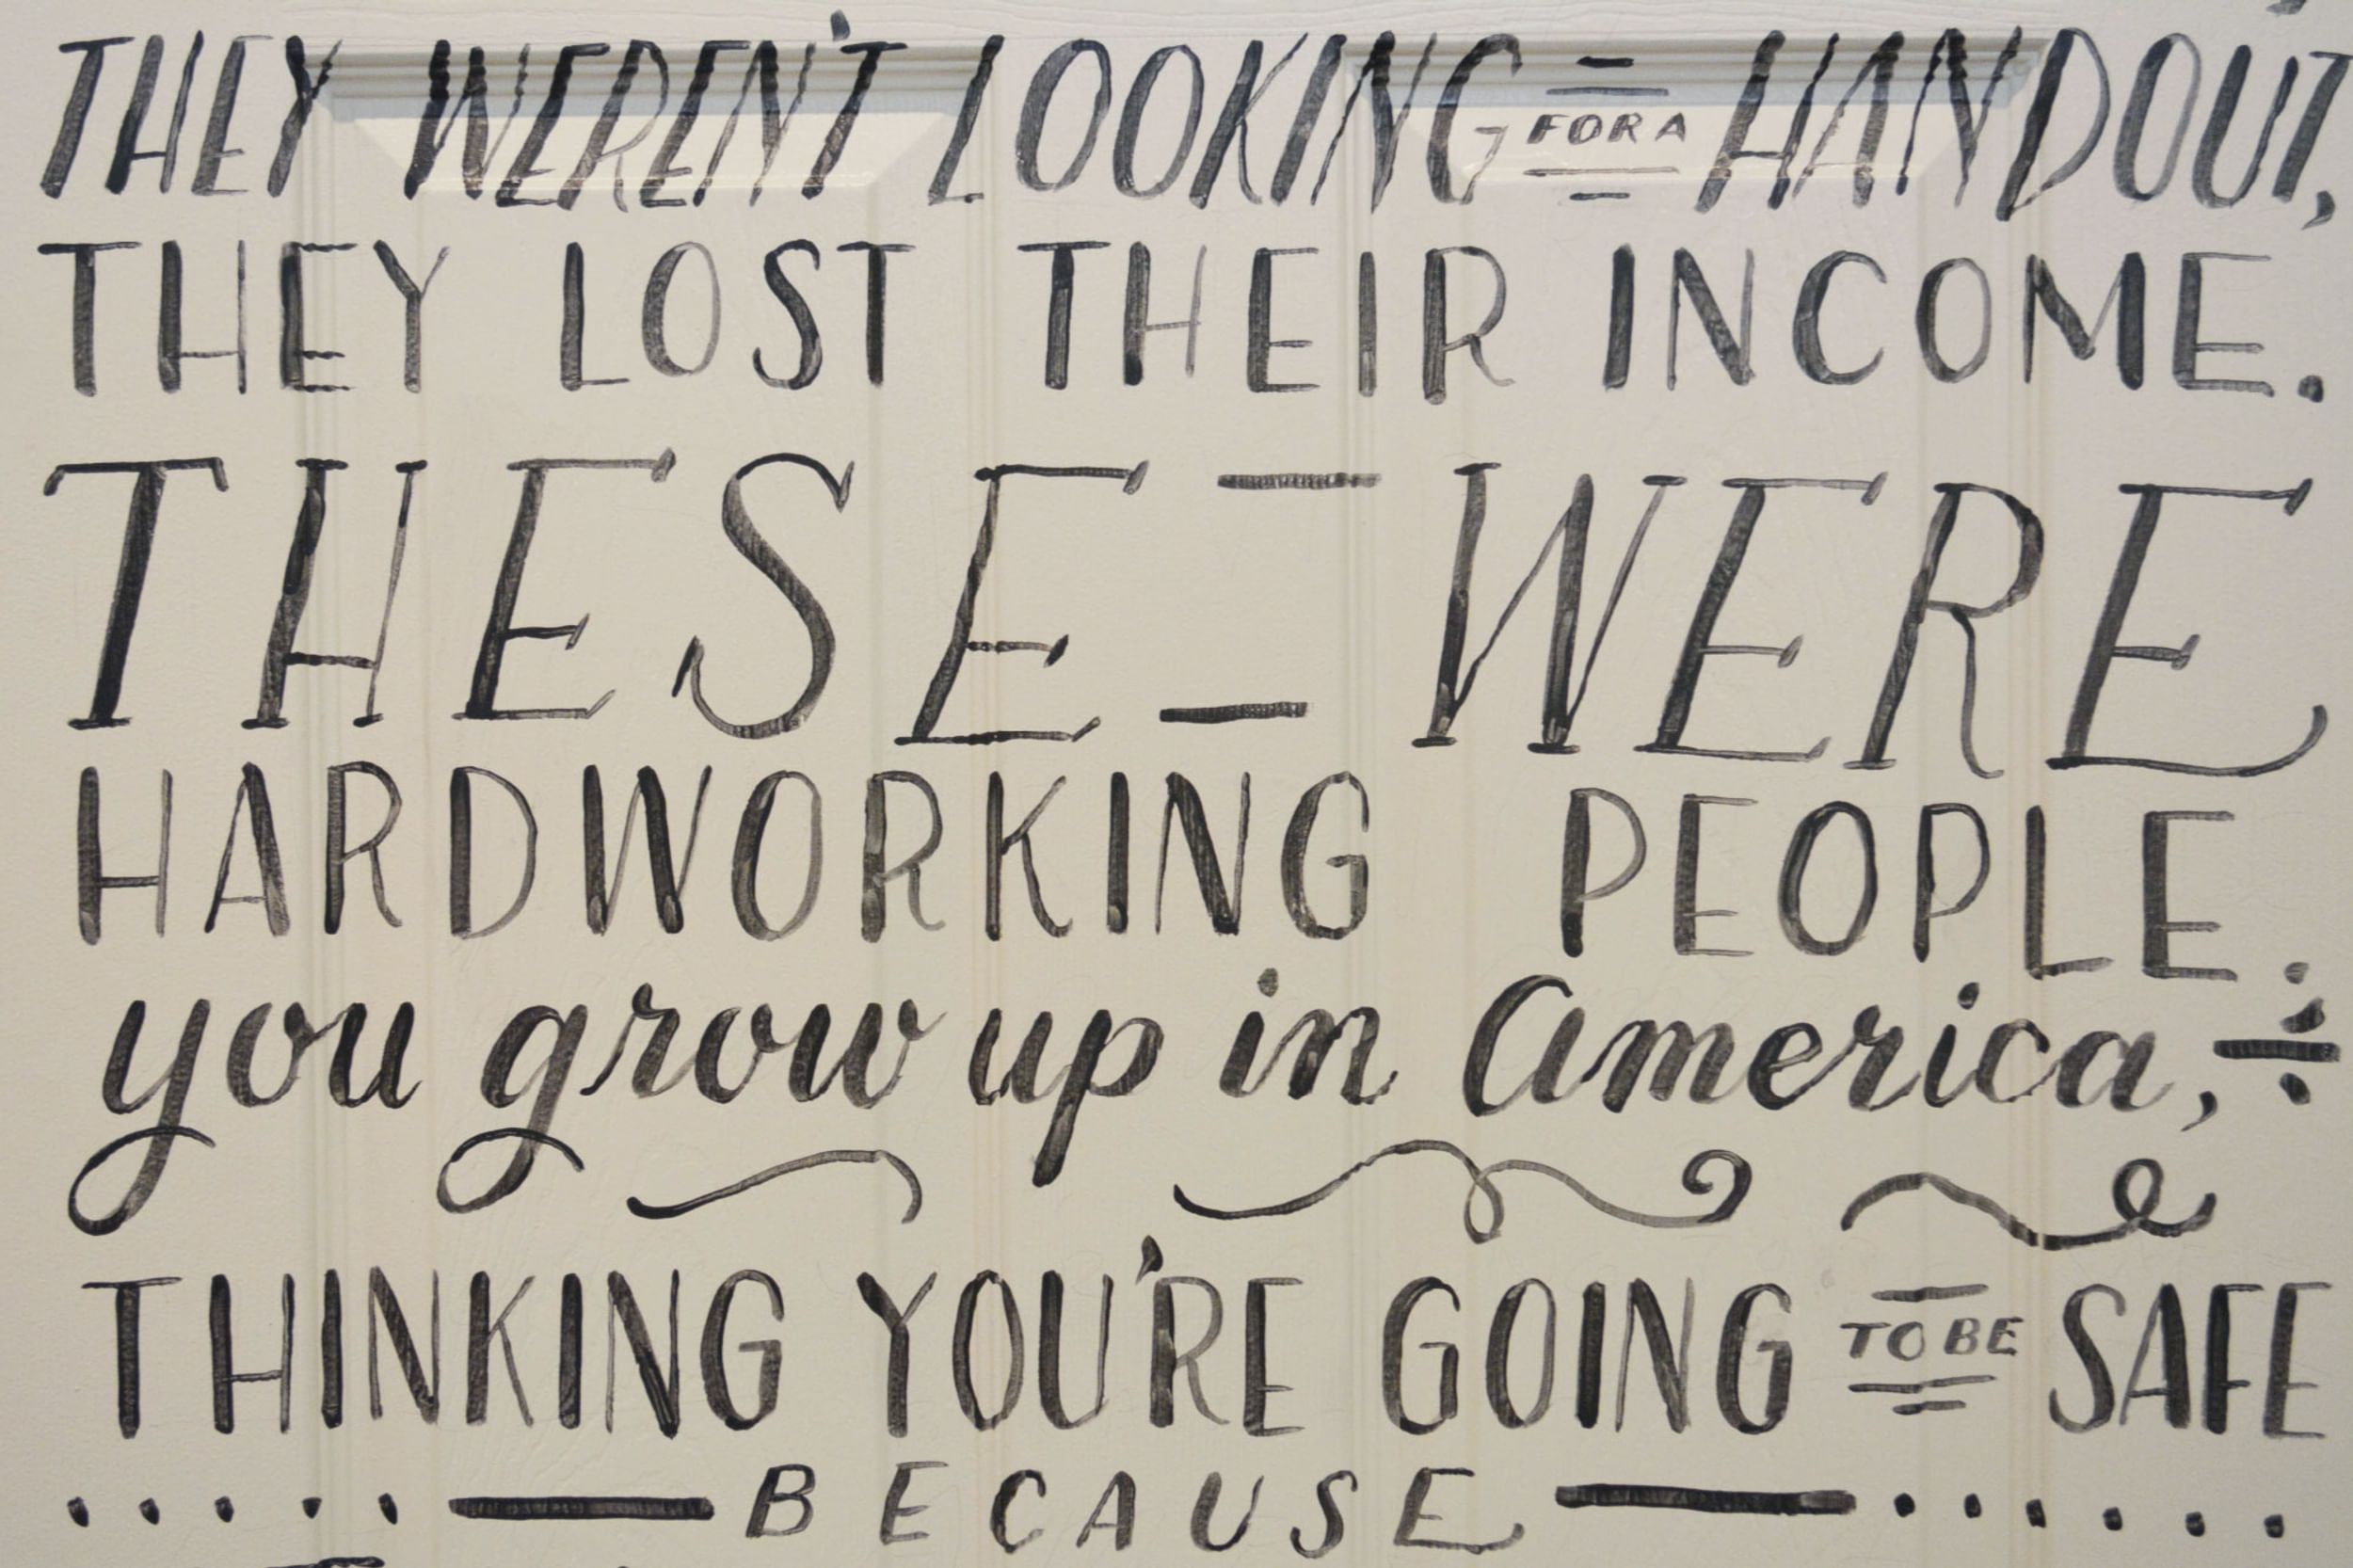 THEY WEREN'T LOOKING FOR A HANDOUT,
THEY LOST THEIR INCOME.
THESE WERE
HARDWORKING PEOPLE.
you grow up in America,
THINKING YOU'RE GOING TO BE SAFE
BECAUSE